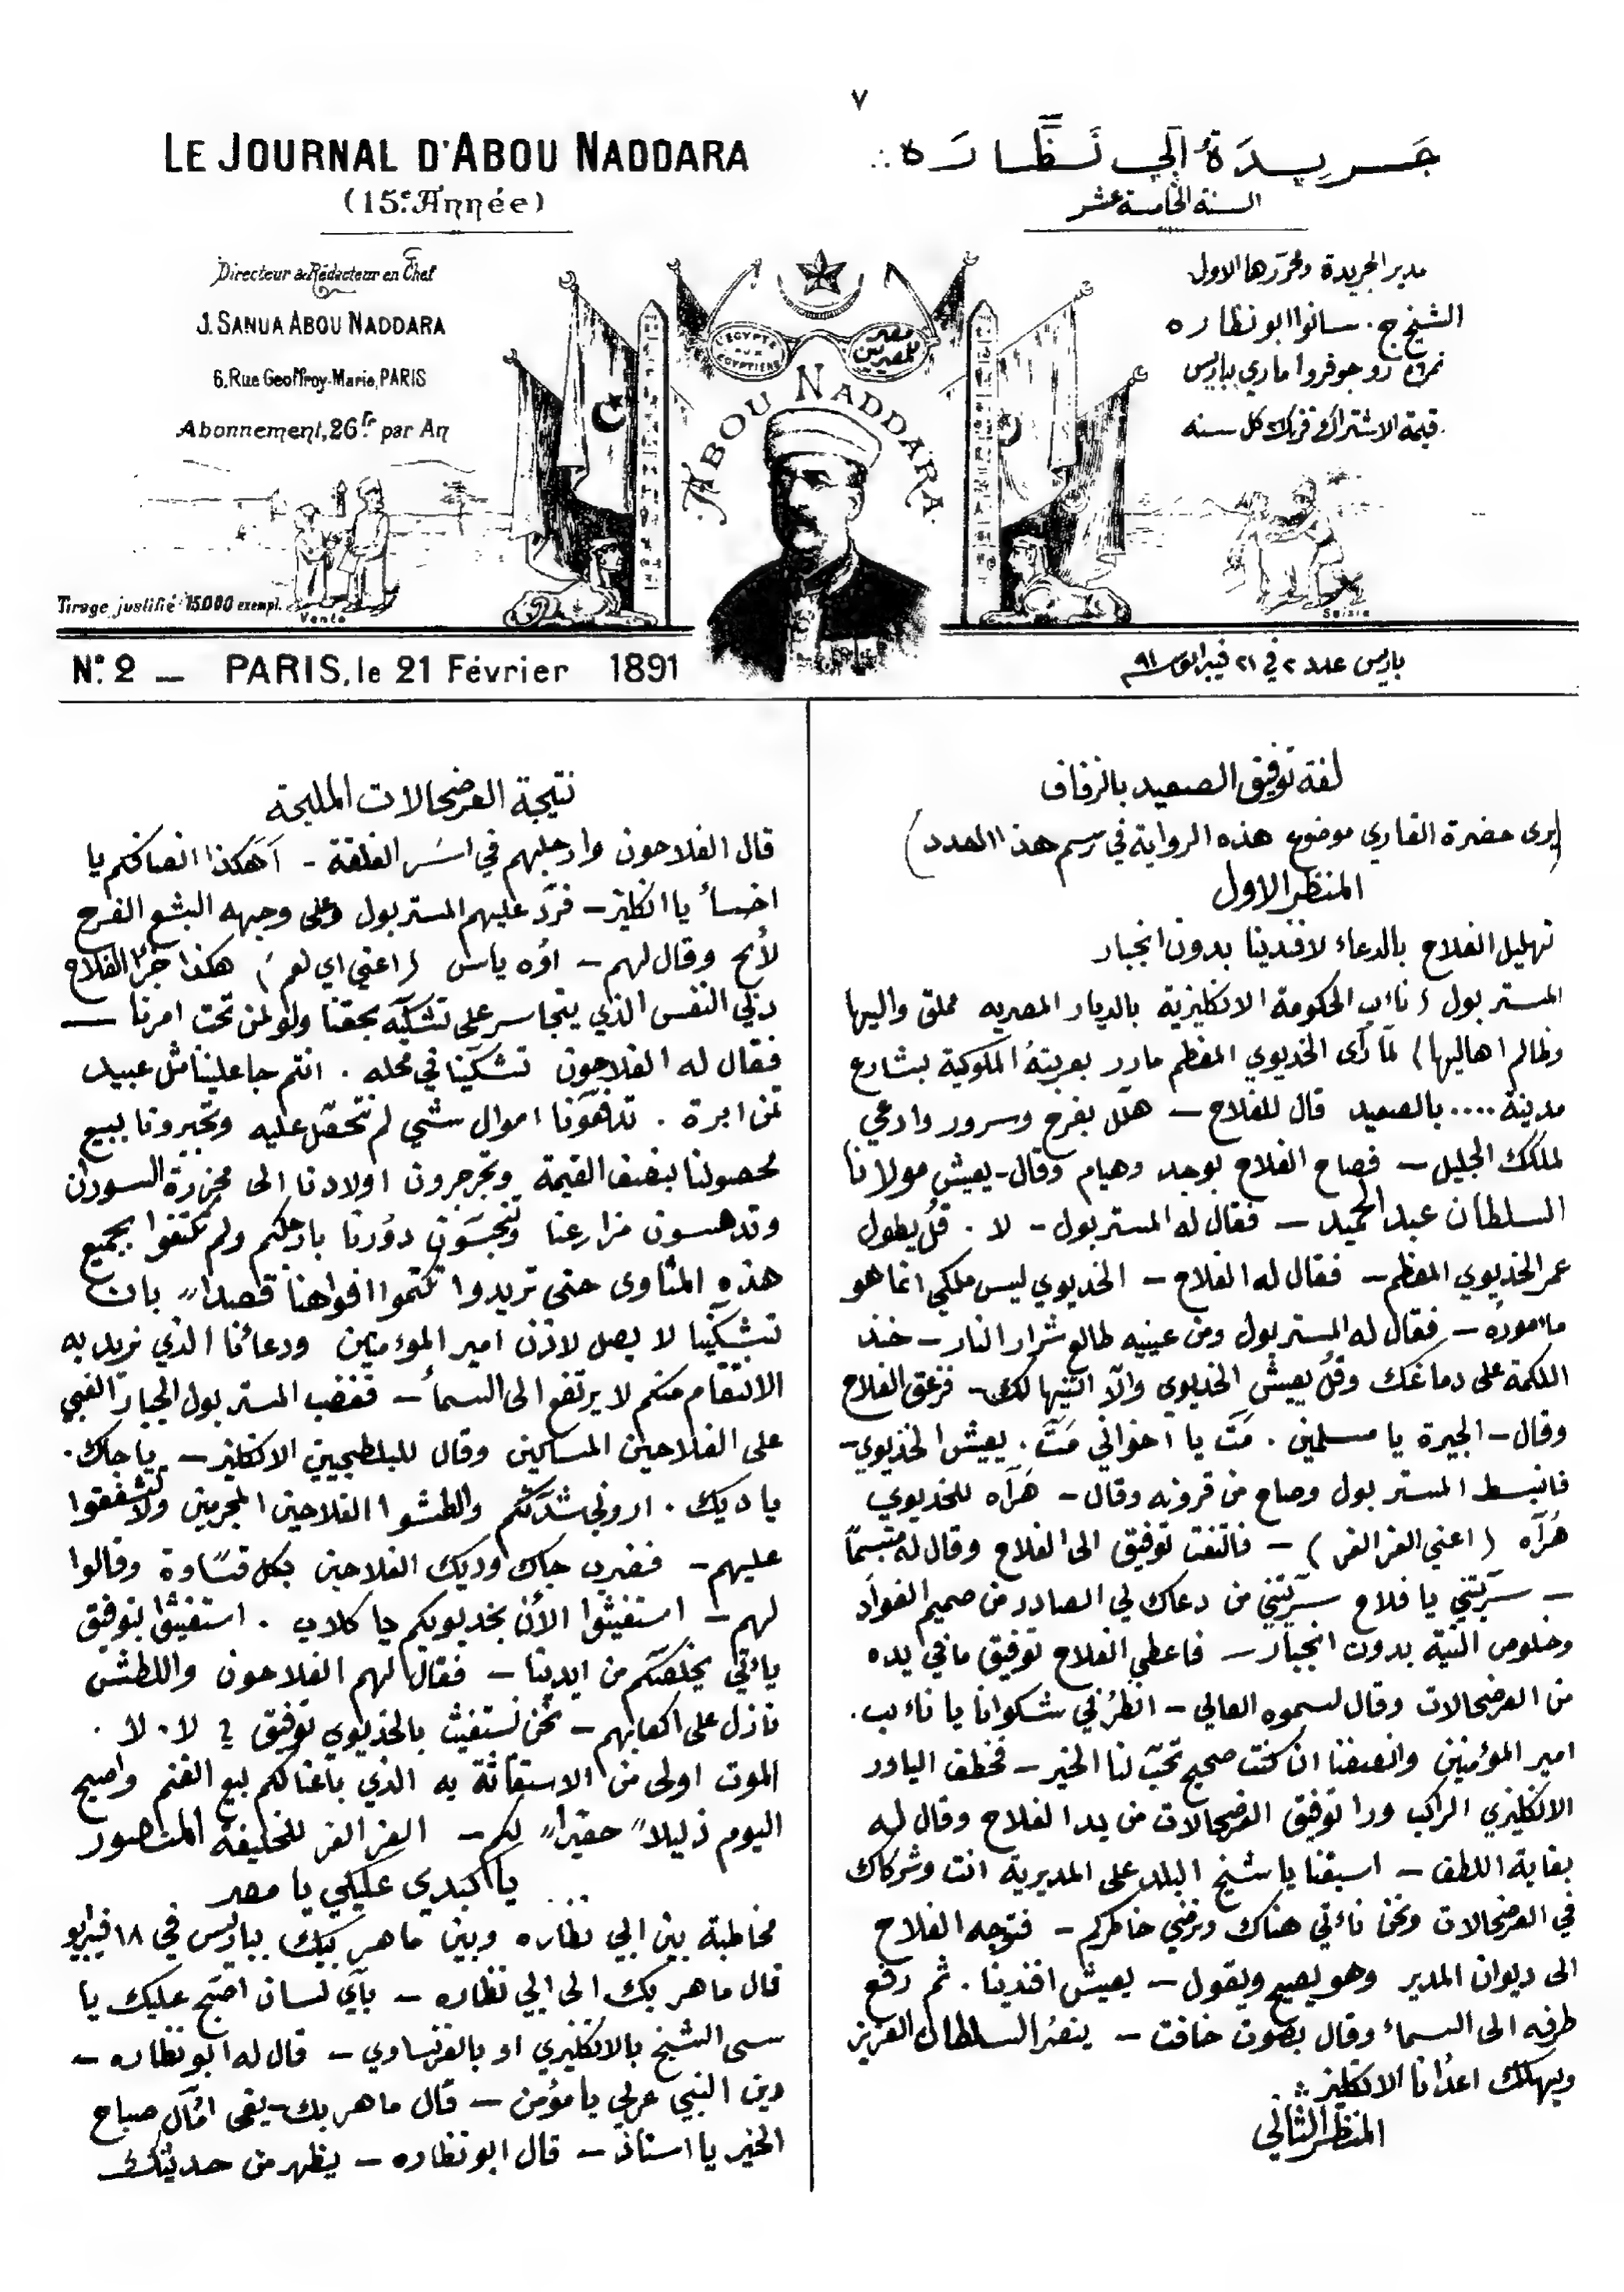 ٧
LE JOURNAL D'ABOU NADDARA
(15e. Année)
Directeur & Rédacteur en Chef
J. SANUA ABOU NADDARA
6, Rue Geoffroy-Marie, PARIS
Abonnement, 26fr. par An
Tirage justifié 15.000 exempl.
Vente
جَريدَةُ أَبي نَظَّارَه
السنة الخامسة عشر
مدير الجريدة ومحرّرها الاول
الشيخ ج. سانوا ابو نظاره
نمرة ٦ رو جوفروا ماري بباريس
قيمة الاشتراك ٢٦ فرنك كل سنه
L'EGYPTE
AUX
EGYPTIENS
مصر
للمصريين
ABOU NADDARA
Saisie
No. 2 — PARIS, le 21 Février 1891
باريس عدد ٢ في ٢١ فبراير سنة ٩١
لفة توفيق الصعيد بالزفاف
(يرى حضرة القاري موضوع هذه الرواية في رسم هذا العدد)
المنظر الاول
تهليل الفلاح بالدعاء لافندينا بدون انجبار
المستر بول (نائب الحكومة الانكليزية بالديار المصريه مملق واليها
وظالم اهاليها) لمّا رأى الخديوي المعظم مارر بعربتهُ الملوكية بشارع
مدينة .... بالصعيد قال للفلاح — هلّل بفرح وسرور وادعي
لملكك الجليل — فصاح الفلاح بوجد وهيام وقال - يعيش مولانا
السلطان عبد الحميد — فقال له المستر بول - لا . قُل يطول
عمر الخديوي المعظم — فقال له الفلاح — الخديوي ليس ملكي انما هو
مأموره — فقال له المستر بول ومن عينيه طالع شرار النار — خذ
اللكمة على دماغك وقُل يعيش الخديوي والّا اتنيها لك - فزعق الفلاح
وقال - الجيرة يا مسلمين . مَتّ يا اخواني مَتّ . يعيش الخديوي -
فانبسط المستر بول وصاح من قرونه وقال — هَرآه للخديوي
هُرآه (اعني العز العز) — فالتفت توفيق الى الفلاح وقال له متبسمًا
— سرّيتني يا فلاح سرّيتني من دعاك لي الصادر من صميم الفواد
وخلوص النية بدون انجبار — فاعطى الفلاح توفيق ما في يده
من العرضحالات وقال لسموه العالي — انظُر في شكوانا يا نائب
امير المؤمنين وانصفنا ان كنت صحيح تحبّ لنا الخير — فخطف الياور
الانكليزي الراكب ورا توفيق العرضحالات من يد الفلاح وقال له
بغاية اللطف — اسبقنا يا شيخ البلد على المديرية انت وشركاك
في العرضحالات ونحن نأتي هناك ونرضي خاطركم — فتوجه الفلاح
الى ديوان المدير وهو يصيح ويقول — يعيش افندينا . ثم رفع
طرفه الى السماء وقال بصوت خافت — ينصُر السلطان العزيز
ويهلك اعدانا الانكليز
المنظر الثاني
نتيجة العرضحالات المليحة
قال الفلاحون وارجلهم في اسَر الفلقة - أهكذا انصافكم يا
اخسأ يا انكليز — فرّد عليهم المستر بول وعلى وجهه البشع الفرح
لائح وقال لهم — أؤه ياس (اعني اي نعم) هكذا جزا الفلاح
دني النفس الذي يتجاسر على تشكّيه بحقنا ولو لمن تحت امرنا —
فقال له الفلاحون تشكّينا في محله . انتم جاعلينا مثل عبيد
ثمن ابرة . تدفعونا اموال شي لم نتحصّل عليه وتجبرونا ببيع
محصولنا بنصف القيمة وتجرجرون اولادنا الى مجزرة السودان
وتدهسون مزارعنا وتنجسّون دوُرنا بارجلكم ولم تكتفوا بجميع
هذه المثاوى حتى تريدوا تكتموا افواهنا قصداً بان
تشكّينا لا يصل لاذن امير المؤمنين ودعائنا الذي نريد به
الانتقام منكم لا يرتفع الى السمأ — فغضب المستر بول الجبار الغبي
على الفلاحين المساكين وقال للبلطجيين الانكليز — يا جاك .
يا ديك . اروني شدّتكم والطشوا الفلاحين المجرمين ولا تشفقوا
عليهم — فضرب جاك وديك الفلاحين بكل قساوة وقالوا
لهم — استغيثوا الأن بخديويكم يا كلاب . استغيثوا بتوفيق
يأتي يخلصكم من ايدينا — فقال لهم الفلاحون واللطش
نازل على اكعابهم — نحن نستغيث بالخديوي توفيق ؟ لا . لا .
الموت اولى من الاستغاثة به الذي باعنا لكم بيع الغنم واصبح
اليوم ذليلاً حقيراً لكم — العز العز للخليفة المنصور
يا كبدي عليكي يا مصر
مخاطبة بين ابي نظاره وبين ماهر بيك بباريس في ١٨ فبراير
قال ماهر بك الى ابي نظاره — بأي لسان اصبّح عليك يا
سى الشيخ بالانكليزي او بالفرنساوي — قال له ابو نظاره —
دين النبي عربي يا مؤمن — قال ماهر بك - يبقى امّال صباح
الخير يا استاذ — قال ابو نظاره — يظهر من حديثك